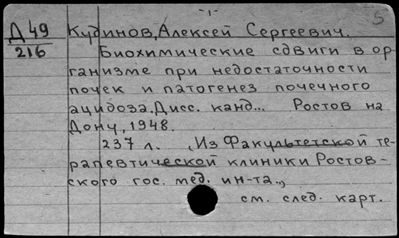 -1-
5
Д 49
216
Кудинов, Алексей Сергеевич.
Биохимические сдвиги в ор-
ганизме при недостаточности
почек и патогенез почечного
ацидоза. Дисс. канд... Ростов на
Дону, 1948.
237 л. (Из Факультетской те-
рапевтической клиники Ростов-
ского гос. мед. ин-та.,
см. след. карт.